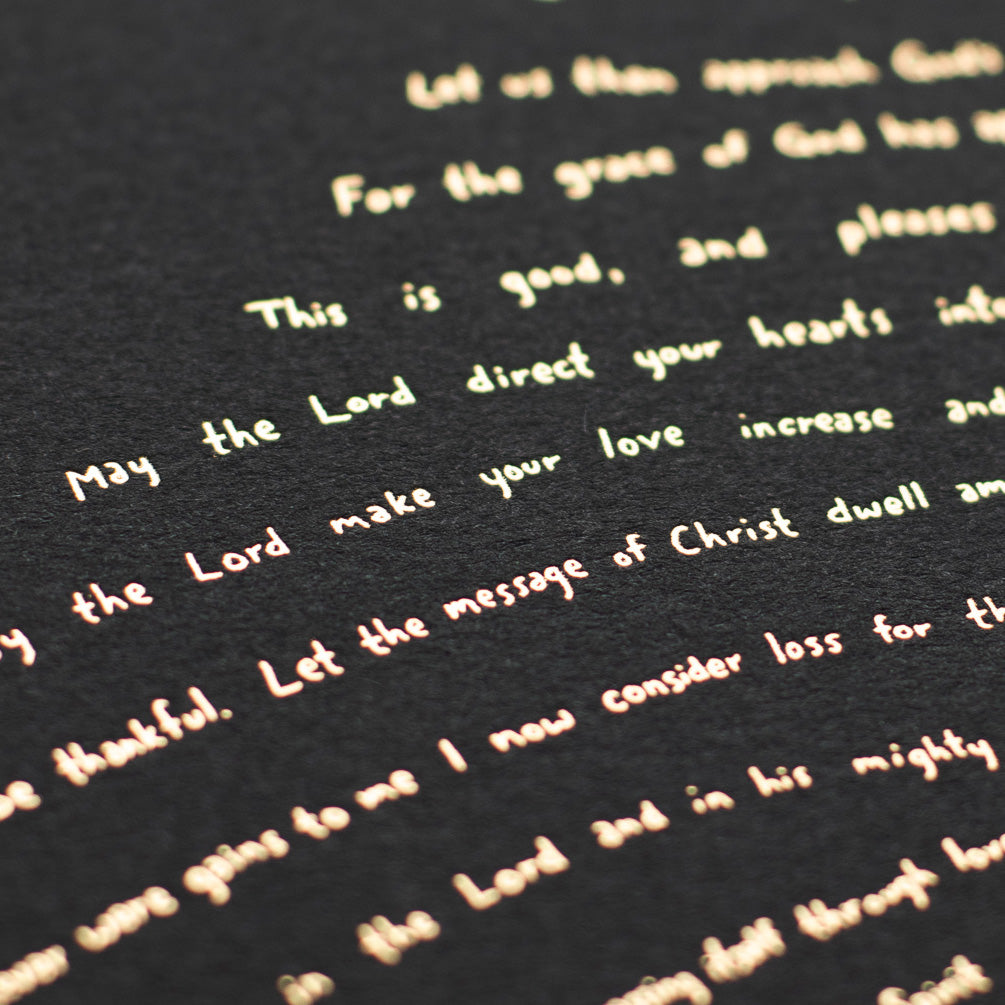 Let us then approach God's
For the grace of God has
This is good, and pleases
May the Lord direct your hearts into
the Lord make your love increase and
be thankful. Let the message of Christ dwell am
were gains to me I now consider loss for th
in the Lord and in his mighty
through love